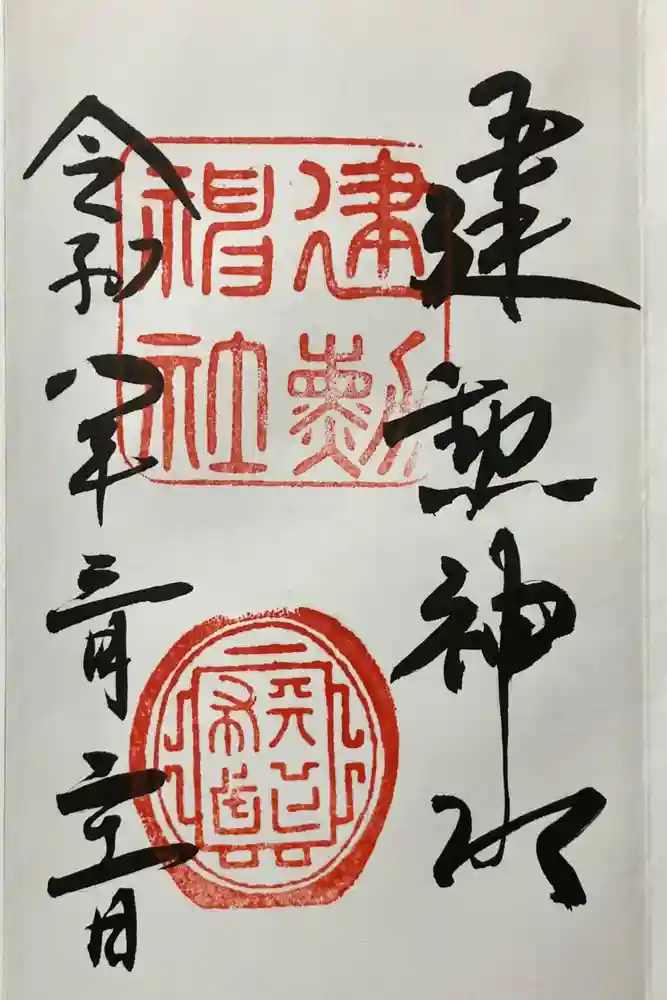 建勲神社
令和八年三月二十一日
建勲
神社